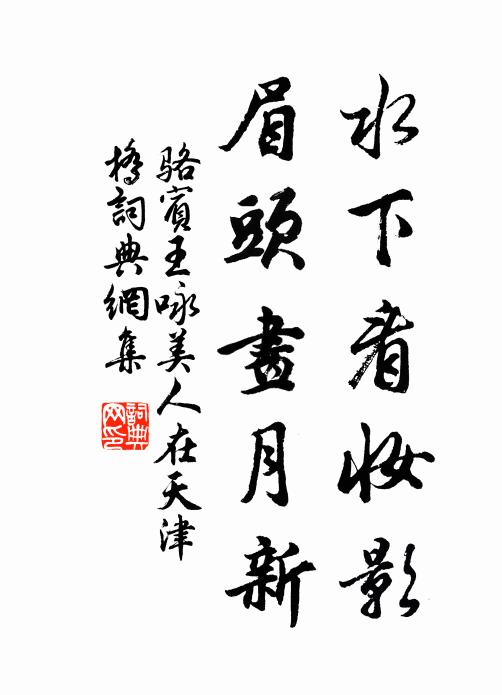 水下看妝影
眉頭畫月新
駱賓王咏美人在天津
橋詞典網集
詞典
网印